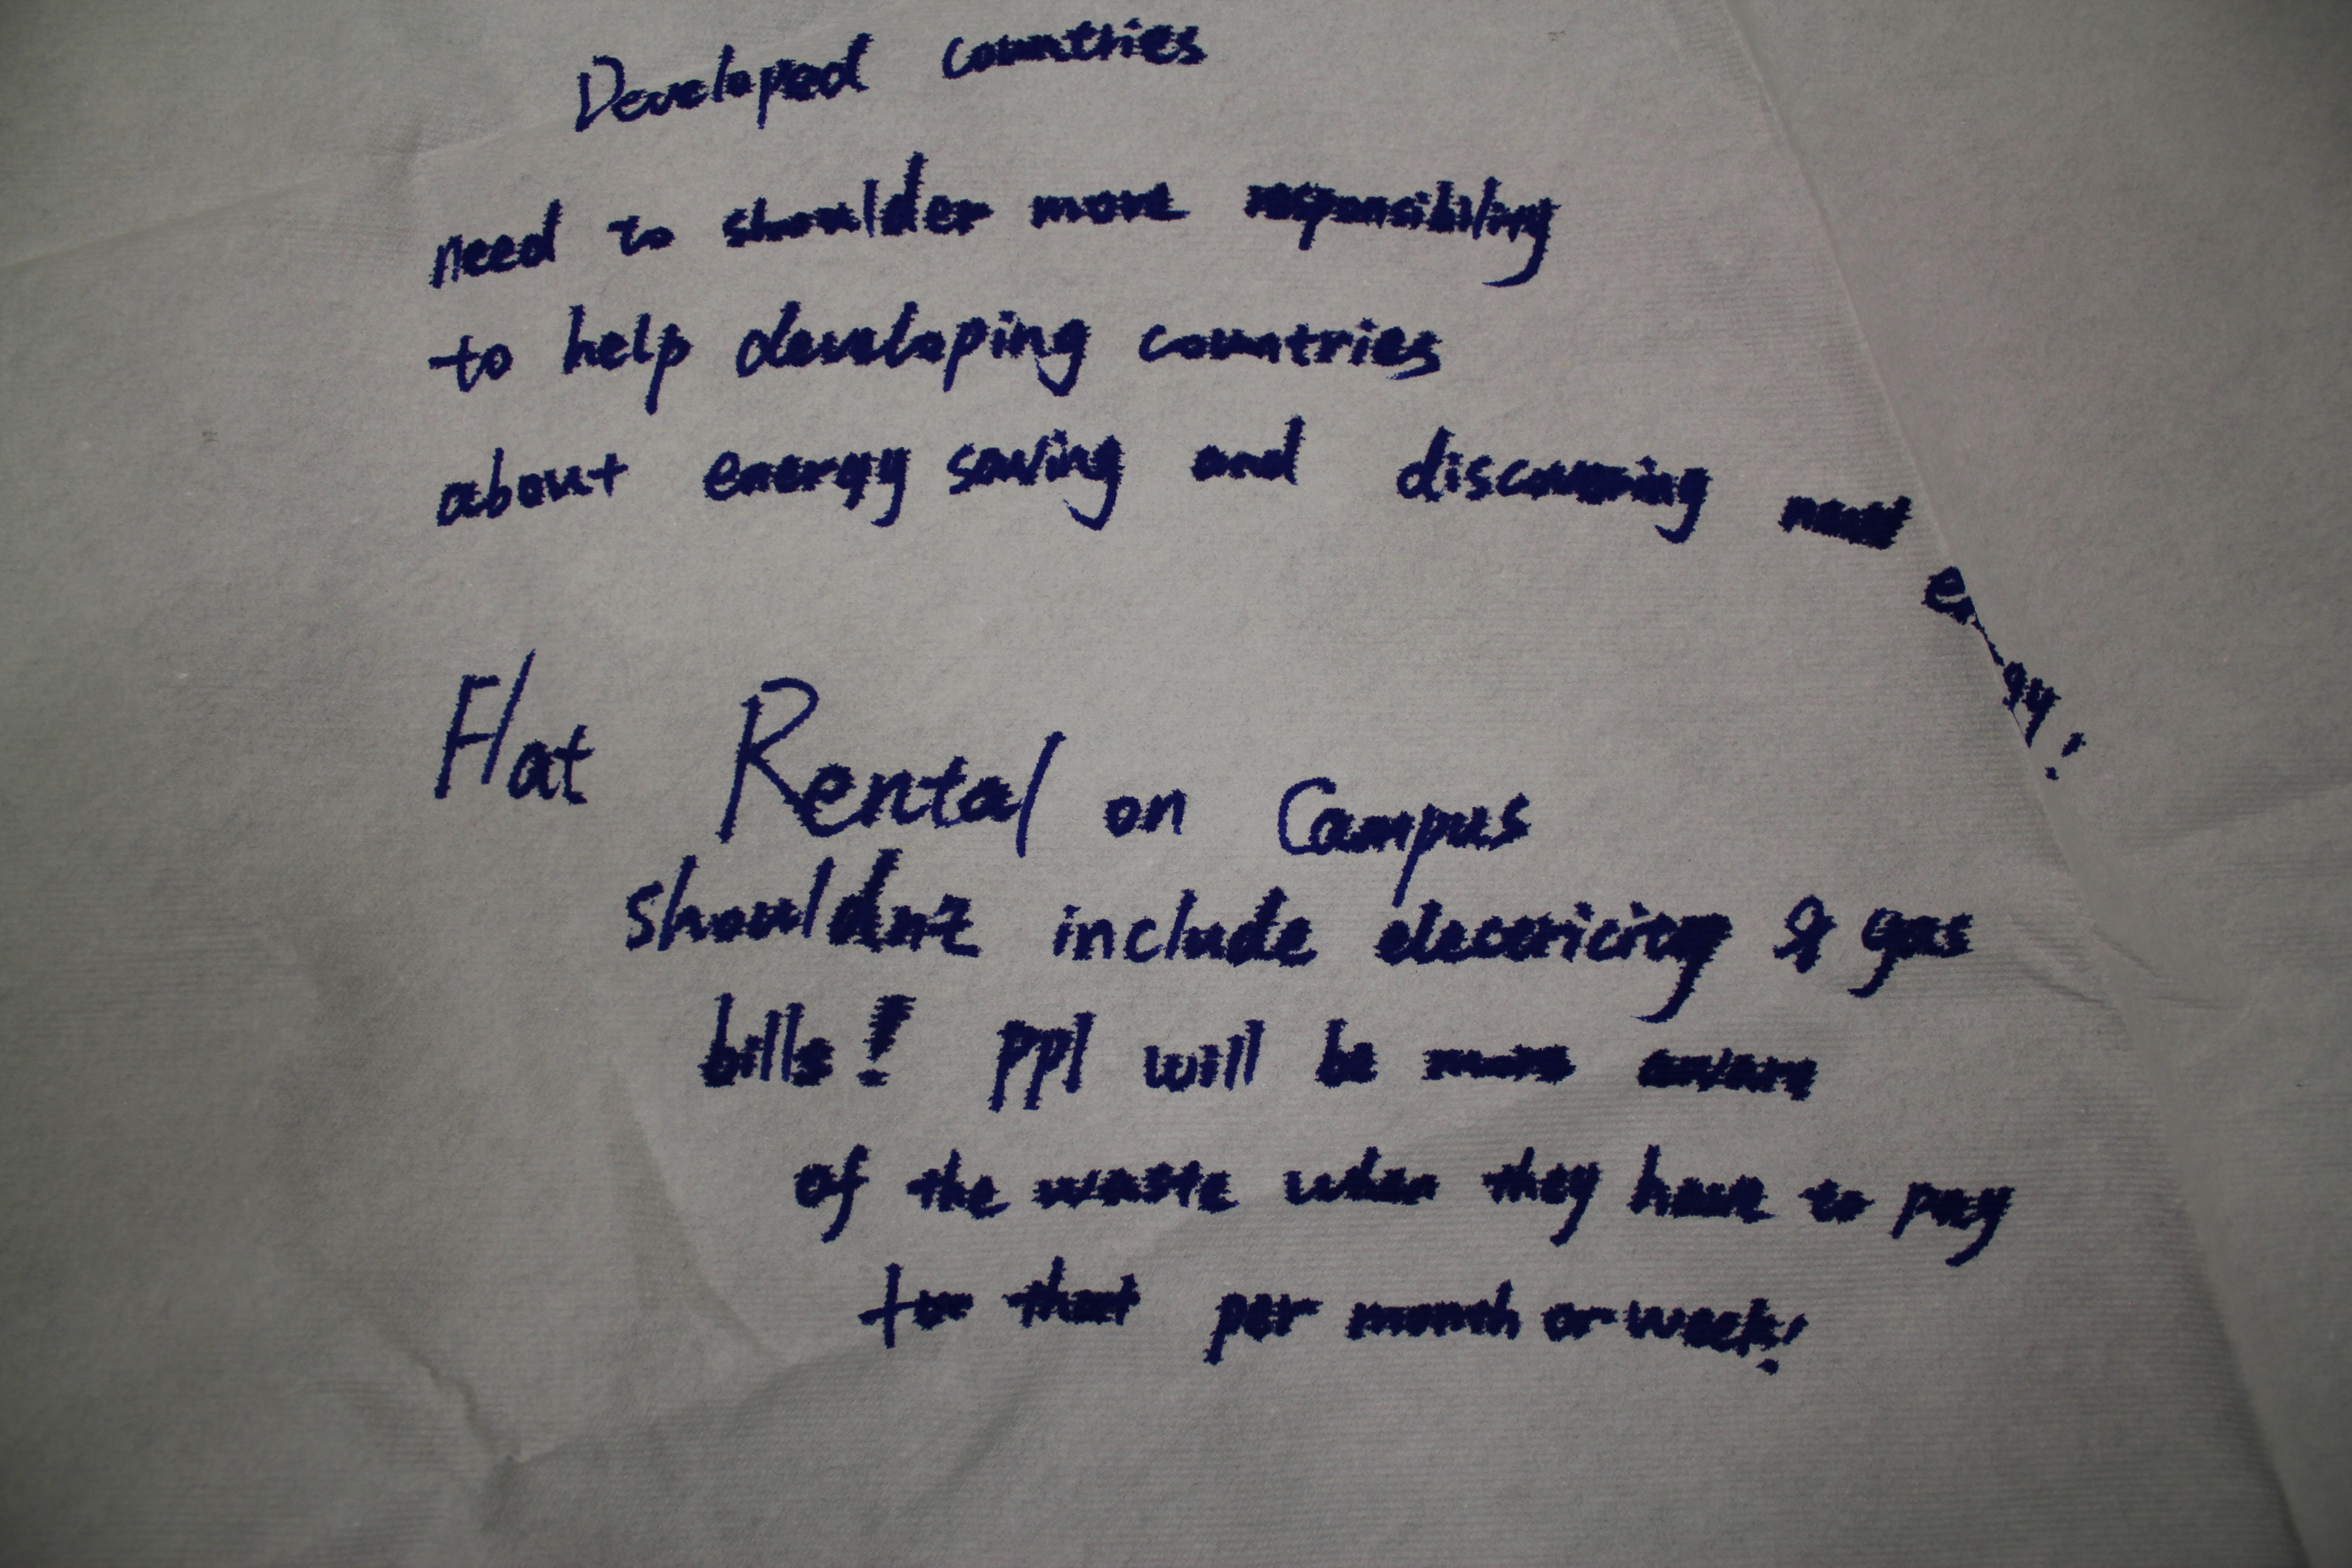 Developed countries
need to shoulder more responsibility
to help developing countries
about energy saving and discovering
Flat Rental on Campus
shouldnt include electricity & gas
bills! ppl will be more aware
of the waste when they have to pay
for that per month or week!